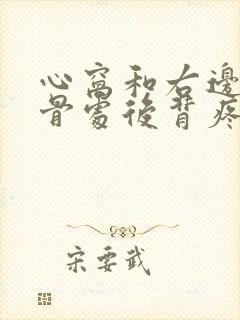 心窩和右邊
骨處後背疼
宋要武